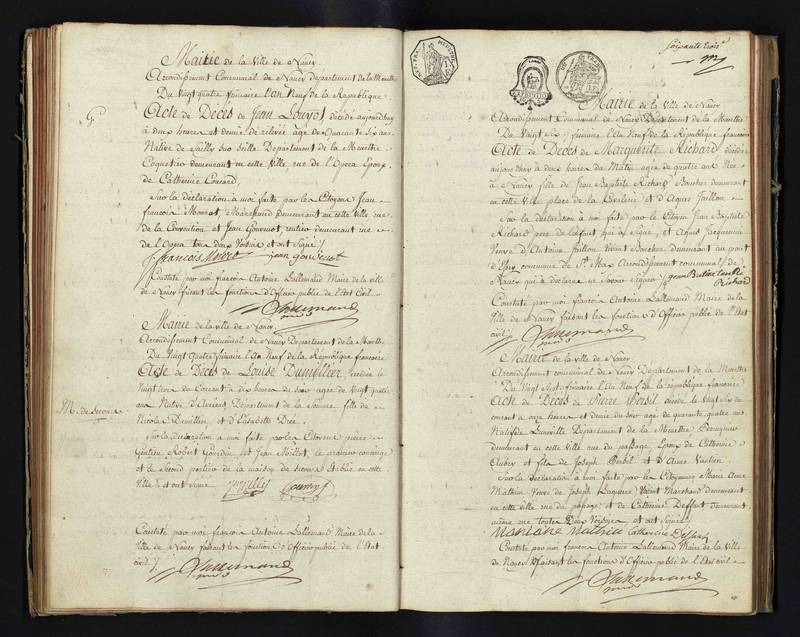 Mairie de la Ville de Nancy.
Arrondissement Communal de Nancy Département de la Meurthe
Du Vingt quatre frimaire L'an Neuf de la République
Acte de Décès de Jean Louvot, décédé aujourd'huy
à deux heures et demie de relevée âgé de Quarante six ans
Natif de Département de la Meurthe
demeurant en cette Ville, rue de l'Opera Epoux
de Catherine
Sur la déclaration à moi faite par les Citoyens Jean
françois demeurant en cette Ville rue
de la Convention et Jean rentier demeurant rue
de l'Opera tous deux Voisins et ont signé
Constaté par moi françois Antoine Lallemand Maire de la ville
de Nancy faisant les fonctions d'Officier public de l'Etat Civil
Lallemand
Mairie de la ville de Nancy
Arrondissement Communal de Nancy Département de la Meurthe
Du Vingt Quatre frimaire L'an Neuf de la République française
Acte de Décès de Louise Dumillier, décédée le
Vingt trois du Courant à dix heures du soir agée de Vingt quatre
ans Native d'Amiens, Département de la Somme, fille de
Nicolas et d'Elisabeth
M. de secours
Sur la déclaration à moi faite par les Citoyens pierre
et Jean Millet, le premier concierge
et le second portier de la maison de secours Etablie en cette
Ville et ont signé
Constaté par moi françois Antoine Lallemand Maire de la
Ville de Nancy faisant les fonctions d'Officier public de l'Etat
civil
Lallemand
Soixante trois
Mairie de la Ville de Nancy
Arrondissement Communal de Nancy Département de la Meurthe
Du Vingt Six frimaire L'an Neuf de la République française
Acte de Décès de Marguerite Richard décédée
aujourd'huy à deux heures du Matin agée de quatre ans Née
à Nancy fille de Jean Baptiste Richard Boucher demeurant
en cette Ville place de la et d'Agnes Jaillon
Sur la déclaration à moi faite par le Citoyen Jean Baptiste
Richard pere de l'enfant qui a signé, et Agnes Jacquemin
Veuve d'Antoine Jaillon Vivant Boucher demeurant au pont
d'Essey commune de St. Max Arrondissement communal de
Nancy qui a déclaré ne savoir signer
Richard
Constaté par moi françois Antoine Lallemand Maire de la
Ville de Nancy faisant les fonctions d'Officier public de l'Etat
civil
Lallemand
Mairie de la Ville de Nancy
Arrondissement communal de Nancy Département de la Meurthe
Du Vingt Sept frimaire L'an Neuf de la République française
Acte de Décès de Pierre décédé le Vingt six du
courant à onze heures et demie du soir agé de quarante quatre ans
Natif de Lunéville Département de la Meurthe
demeurant en cette Ville rue du passage Epoux de Catherine
Aubry et fils de Joseph et d'Anne
Sur la déclaration à moi faite par les Citoyennes Marie Anne
Mathieu Veuve de Joseph Vivant Marchand demeurant
en cette Ville rue du passage et de Catherine demeurant
même rue toutes Deux Voisines et ont signé
Mariane Mathieu
Constaté par moi françois Antoine Lallemand Maire de la Ville
de Nancy faisant les fonctions d'Officier public de l'Etat civil
Lallemand